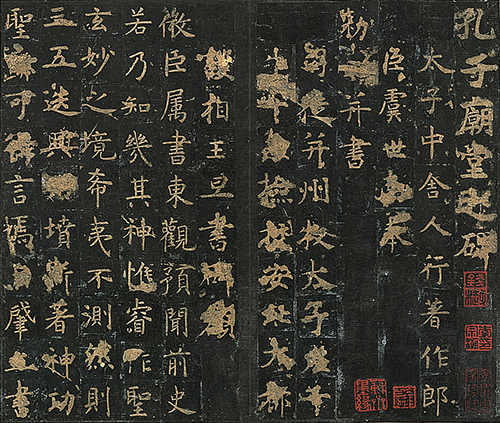 孔子廟堂之碑
太子中舍人行著作郎
臣虞世南奉
勑撰并書
司徒并州牧太子左千
牛率兼檢校安北大都
護相王旦書碑額
微臣属書東觀預聞前史
若乃知幾其神惟睿作聖
玄妙之境希夷不測然則
三五迭興典墳斯著神功
聖迹可得言焉自肇立書